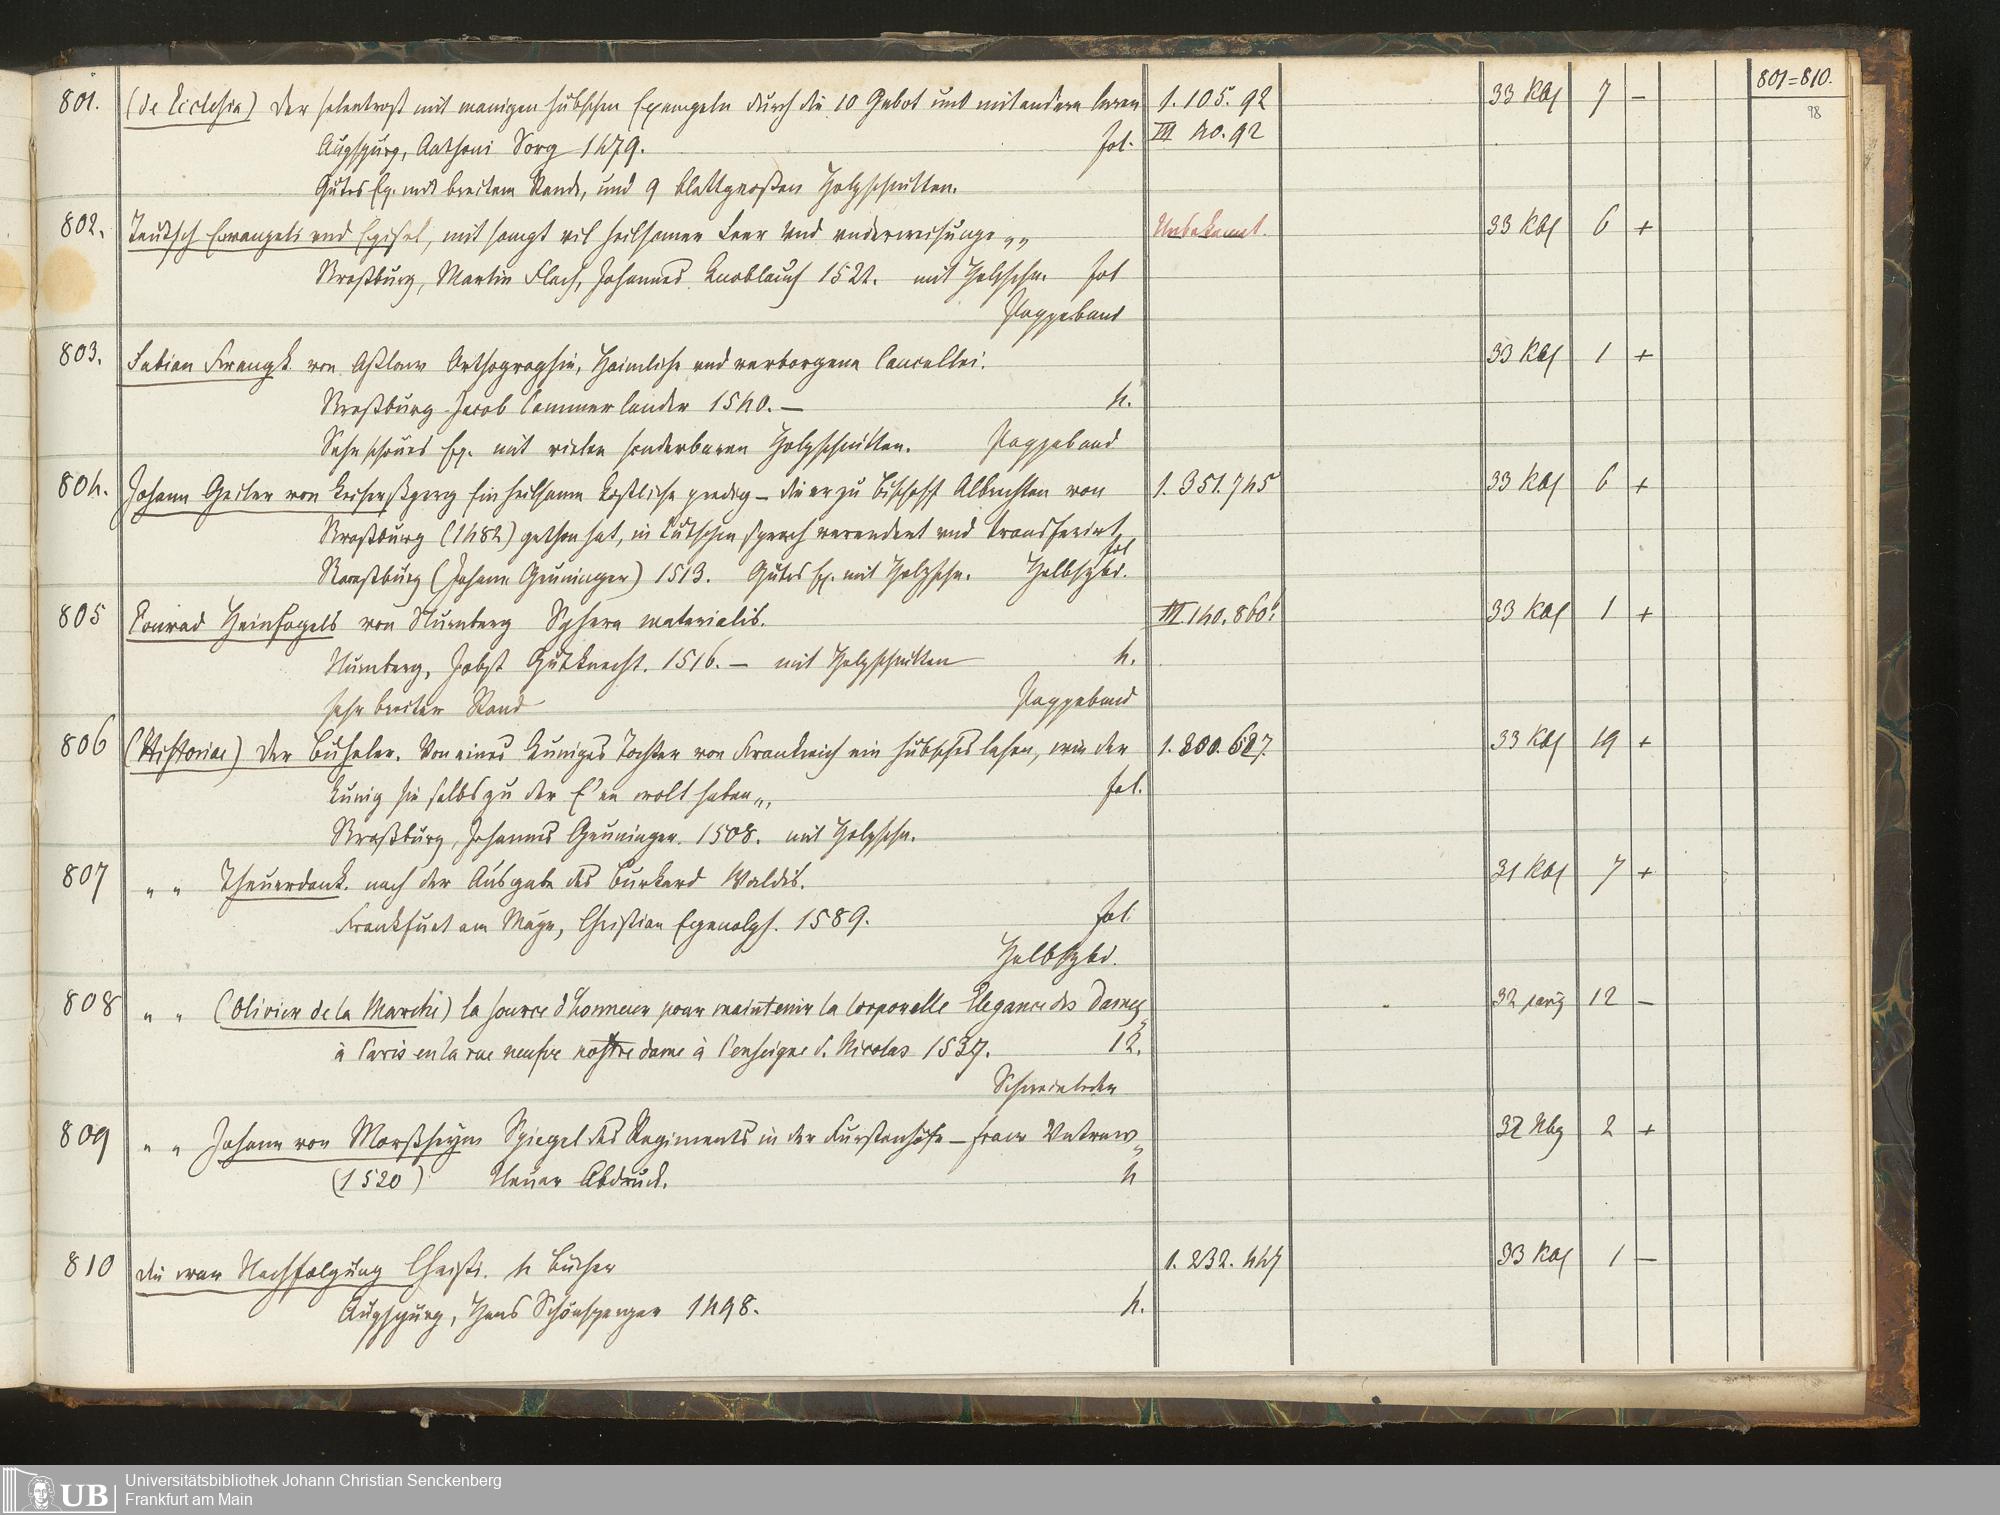 801=810.
98
801. (de Ecclesia) Der selentrost mit manigen hübschen Exempeln durch die 10 Gebot und mit andern leren 1. 105. 92 33 Kbl 7 –
Augspurg, Anthoni Sorg 1479. fol. III 40. 92
Gutes Ex. mit breitem Rande, und 9 blattgroßen Holzschnitten.
802. Teutsch Evangeli und Epistel, mit sampt vil heilsamer Leer und underweisunge „„ Unbekannt. 33 Kbl 6 +
Straßburg, Martin Flach, Johannes Knoblauch 1522. mit Holzschn. fol
Pappeband
803. Fabian Frangk von Aßlaw Orthographie, Heimliche und verborgene Cancellei. 33 Kbl 1 +
Straßburg Jacob Cammerlander 1540. — 4.
Sehr schönes Ex. mit vielen sonderbaren Holzschnitten. Pappeband
804. Johann Geiler von Keisersßperg Ein heilsame kostliche predig – die er zu Bischoff Albrechten von 1. 351. 745 33 Kbl 6 +
Straßburg (1482) gethon hat, in Tütschen sprach verendert und transferirt
fol
Straßburg (Johann Gruninger) 1513. Gutes Ex. mit Holzschn. Halbfzbd.
805 Conrad Heinfogels von Nurnberg Sphera materialis. III 140. 860b 33 Kbl 1 +
Nurnberg, Jobst Gutknecht. 1516. — mit Holzschnitten 4.
sehr breiter Rand Pappeband
806 (Historiae) Der Büheler. Von eines Küniges Tochter von Frankreich ein hübsches lesen, wie der 1. 300. 627 33 Kbl 19 +
künig sie selbs zu der E'en wolt haben „, fol.
Straßburg, Johannes Gruninger. 1508. mit Holzschn.
807 „ „ Theuerdank. nach der Ausgabe des Burkard Waldis. 31 Kbl 7 +
Frankfurt am Mayn, Christian Egenolph. 1589. fol
Halbfzbd.
808 „ „ (Olivier de la Marche) la source d'honneur pour maintenir la corporelle Elegance des Dames 32 12 –
à Paris en la rue neufve nostre dame à l'enseigne S. Nicolas 1532. 12.
Schweinleder
809 „ „ Johann von Morßheym Spiegel des Regiments in der Furstenhöfe – fraw Untraw „ 32 Nbg 2 +
(1520) Neuer Abdruck. 4
810 die war Nachfolgung Christi. 4 Bücher 1. 232. 447 33 Kbl 1 –
Augspurg, Hans Schönsperger 1498. 4.
UB Universitätsbibliothek Johann Christian Senckenberg
Frankfurt am Main